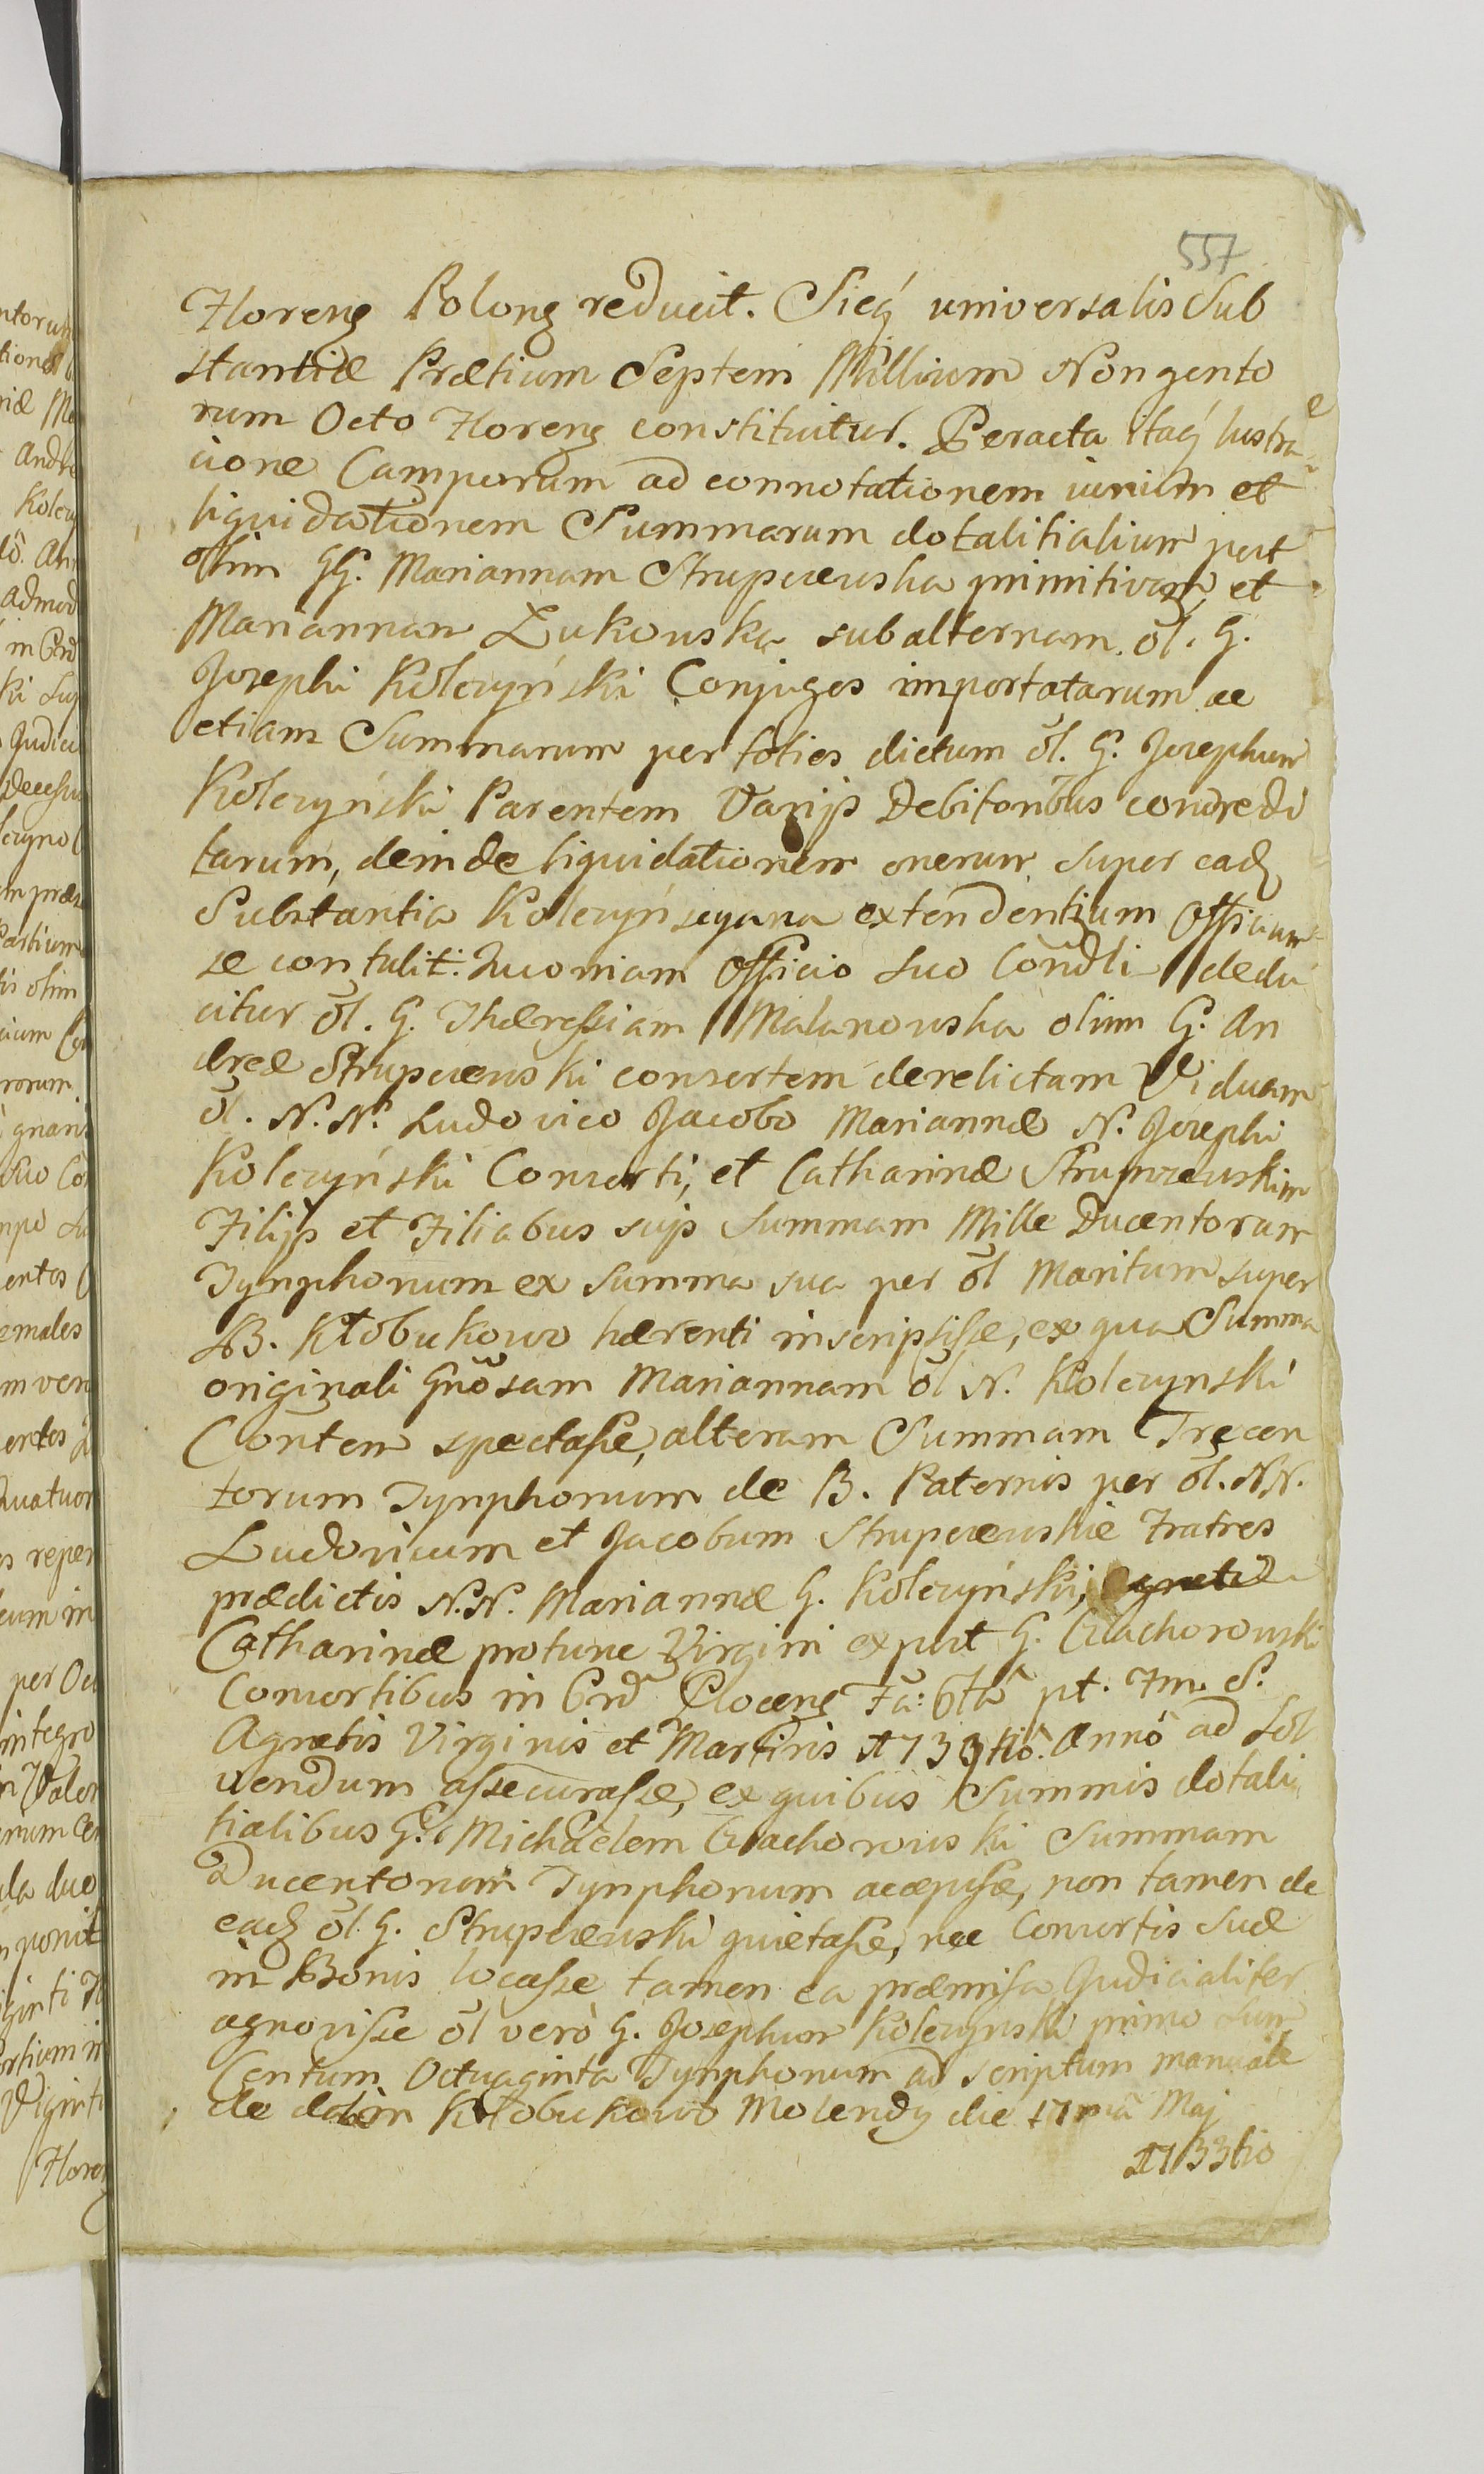 557
Floreng Polong reducit. Sicq́ universalis Sub
stantiæ Prætium Septem Millium Nongento
rum Octo Floreng constituitur. Peracta itaq́ lustra
cione Camporum ad connotationem et
liquidationem Summarum dotalitialium post
olim GG. Mariannam Strupczewska primitivam et
Mariannam Żukowska subalternam ol. G.
Josephi Kolczyński Conjuges importatarum ac
etiam Summarum per toties dictum ol. G. Josephum
Kolczyński Parentem Varijs Debitoribus concredi
tarum, deinde liquidationem onerum super eadz
Substantia Kolczyńscyana extendentium Officium
se contulit: Quoniam Officio suo Condli dedu
citur ol. G. Theressiam Malanowska olim G. An
dreæ Strupczewski consortem derelictam Viduam
ol. N.N. Ludovico Jacobo Mariannæ N. Josephi
Kolczyński Consorti, et Catharinæ Strupczewskim
Filijs et Filiabus suis Summam Mille Ducentorum
Tynphonum ex Summa sua per ol Maritum super
B. Kłobukowo hærenti inscripsisse, ex qua Summa
originali Gnõsam Mariannam ol N. Kolczynski
Contem spectasse, alteram Summam Trecen
torum Tynphonum de B. Paternis per ol. N.N.
Ludovicum et Jacobum Strupczewskie Fratres
prædictis N.N. Mariannæ G. Kolczyński,
Catharinæ protunc Virgini expost G. Czachorowski
Consortibus in Crd Ploceng Fa: 6ta pt. Fm. S.
Agnetis Virginis et Martiris 1733tiô. Annô ad Sol
vendum assecurasse, ex quibus Summis dotali
tialibus G. Michaelem Czachorowski Summam
Ducentorum Tynphonum accepisse, non tamen de
eadz ol. G. Strupczewski quietasse, nec Consortis suæ
in Bonis locasse tamen ea præmissa Judicialiter
agnovisse ol verò G. Josephum Kolczynski primo Sum
Centum Octuaginta Tynphonum ad scriptum manuale
de Kłobukowo Molendy die 17mâ Maj
1733tio